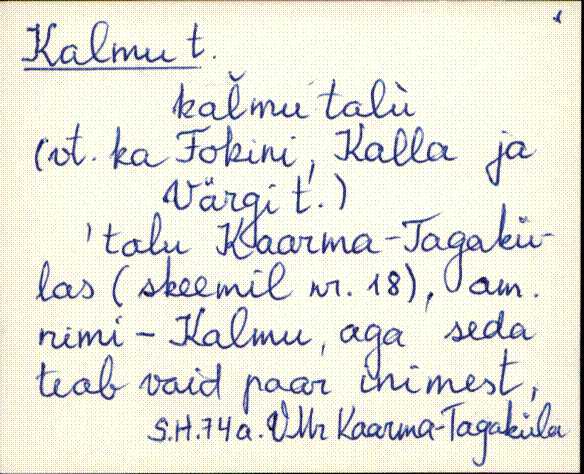 Kalmu t.
kal̆mu talù
(vt. ka Fokini, Kalla ja
Värgi t.)
'talu Kaarma-Tagakü-
las (skeemil nr. 18), am.
nimi - Kalmu, aga seda
teab vaid paar inimest,
S.H.74a. VMr Kaarma-Tagaküla